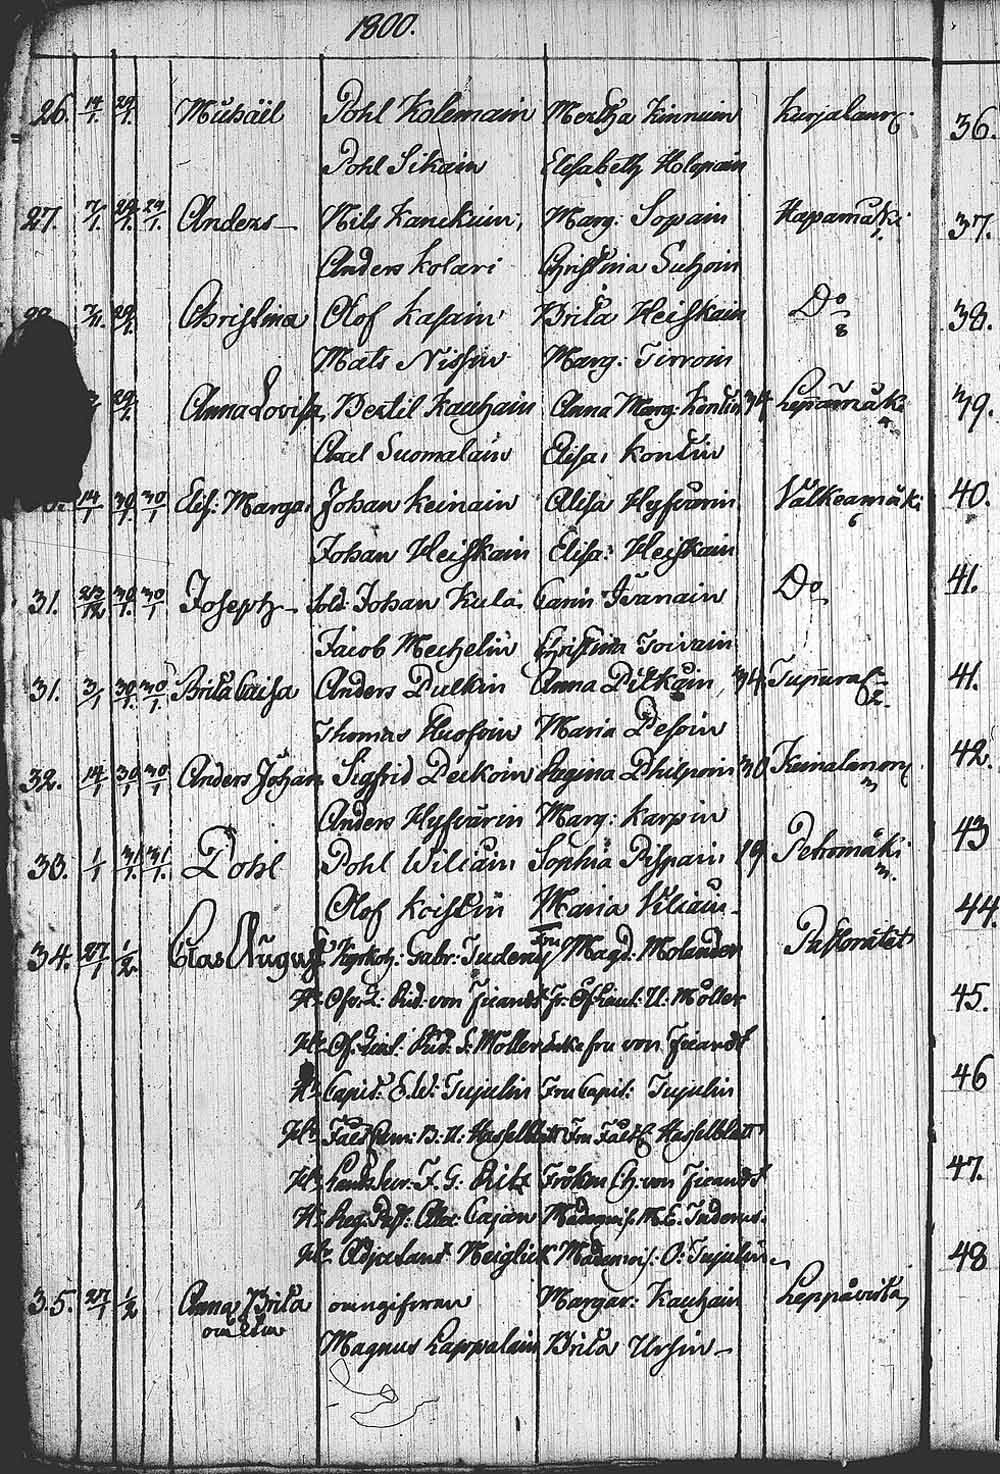 1800.
26. 14/1. 29/1. Michäel Pohl Kolemain Mertha Kinnuin Kurjalanr. 36.
Pohl Sikain Elisabeth Holopain
27. 7/1. 29/1. 29/1. Anders Nils Kanckuin, Marg: Sopain Hapamäki 37.
Anders Kolari Christina Suhoin
29/1. Christina Olof Kasain Brita Heiskain Do 8 38.
Mats Nissin Marg: Tirroin
29/1. Anna Lovisa Bertil Kauhain Anna Marg: Kontin 34 Lepämäki 39.
Axel Suomalain Elisa: Kontin
14/1 30/1. 30/1 Elis: Margar Johan Keinain Elisa Hyfvärin Valkeamäki 6 40.
Johan Heiskain Elisa: Heiskain
31. 23/12 30/1. 30/1 Joseph Sold: Johan Kula Carin Ivanain Do 41.
Jacob Mechelin Christina Toivain
31. 3/1 30/1. 30/1 Brita Caisa Anders Pulkin Anna Pitkäin 34 2. 41.
Thomas Huofoin Maria Pesoin
32. 14/1 30/1 30/1 Anders Johan Sigfrid Peckoin Regina Philpoin 30 Keinalanr 3 42.
Anders Hyfvärin Marg: Karpin
33. 1/1 31/1. 31/1. Pohl Pohl Wiliain Sophia Pispain 19 Petromäki 3. 43
Olof Koistin Maria Viliain 44.
34. 27/1 1/2 Clas August Kyrkoh: Gabr: Tuderus Fru Magd: Molander Pastoratet
Hr Öfv. L: Rid: von Ficandt Fr: Öf. Lieut: U: Möller 45.
Hr Öf. Leut: Rid: S: Möller Enkefru von Ficandt
Hr Capit: E. W: Tujulin Fru Capit: Tujulin 46
Hr Fält Cam: B: U: Hasselblatt Fru Fält C Hasselblatt
Hr Lands Secr: F. G: Ritz Fröken Ch: von Ficandt 47.
Hr Reg: Past: Cajan Mademois. M. E. Tuderus.
Hr Adjutant Neiglick Mademois: O: Tujulin 48
35. 27/1 1/2 Anna Brita oangifven Margar: Kauhain Leppävirta
oäckta
Magnus Lappalain Brita Ursin